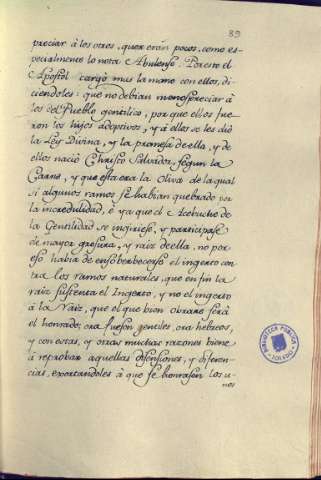 89
preciar à los otros, quer eran pocos, como es-
pecialmente lo nota Abulense. Por esto el
Apostol cargò mas la mano con ellos, di-
ciendoles: que no debian menospreciar à
los del Pueblo gentilico, por que ellos fue-
ron los hijos adoptivos, y à ellos se les diò
la Ley Divina, y la promesa de ella, y de
ellos naciò Christo Salvador, segun la
Carne, y que esta era la Oliva de la qual
si algunos ramos se habian quebrado por
la incredulidad, è ya que el Acebuche de
la Gentilidad se ingiriese, y participase
de mayor grosura, y raiz de ella, no por
eso habia de ensoberbecerse el ingerto con
tra los ramos naturales, que en fin la
raiz sustenta el Ingerto, y no el ingerto
à la raiz, que el que bien obrare serà
el honrado, ora fuesen gentiles, ora hebreos,
y con estas, y otras muchas razones viene
à reprobar aquellas disensiones, y diferen-
cias, exortandoles à que se honrasen los u-
nos
BIBLIOTECA PUBLICA
TOLEDO